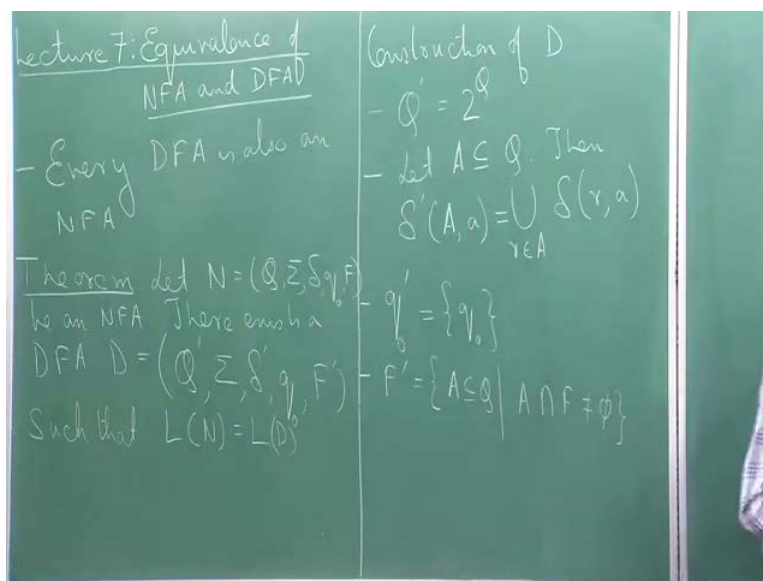 Lecture 7: Equivalence of
NFA and DFA
- Every DFA is also an
NFA
Theorem Let N = (Q, Σ, δ, q₀, F)
be an NFA There exists a
DFA D = (Q', Σ, δ', q₀', F')
Such that L(N) = L(D)
Construction of D
- Q' = 2^Q
- Let A ⊆ Q. Then
δ'(A, a) = ⋃ δ(r, a)
r∈A
- q₀' = {q₀}
- F' = {A ⊆ Q | A ∩ F ≠ φ}